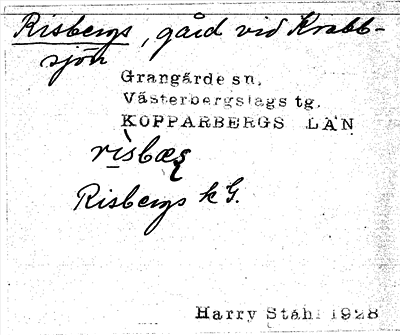 Risbergs, gård vid Krabb-
sjön
Grangärde sn.
Västerbergslags tg.
KOPPARBERGS LÄN
Risbergs k G.
Harry Ståhl 1928